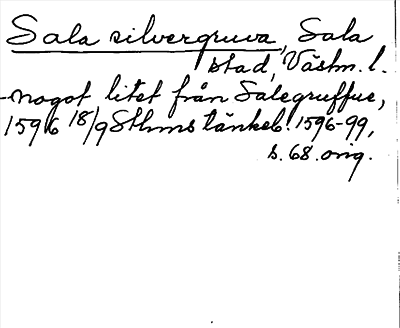 Sala silvergruva, Sala
stad, Västm. l.
-nogot litet från Salegruffue,
1596 18/9 Sthms tänkeb. 1596-99,
s. 68. orig.